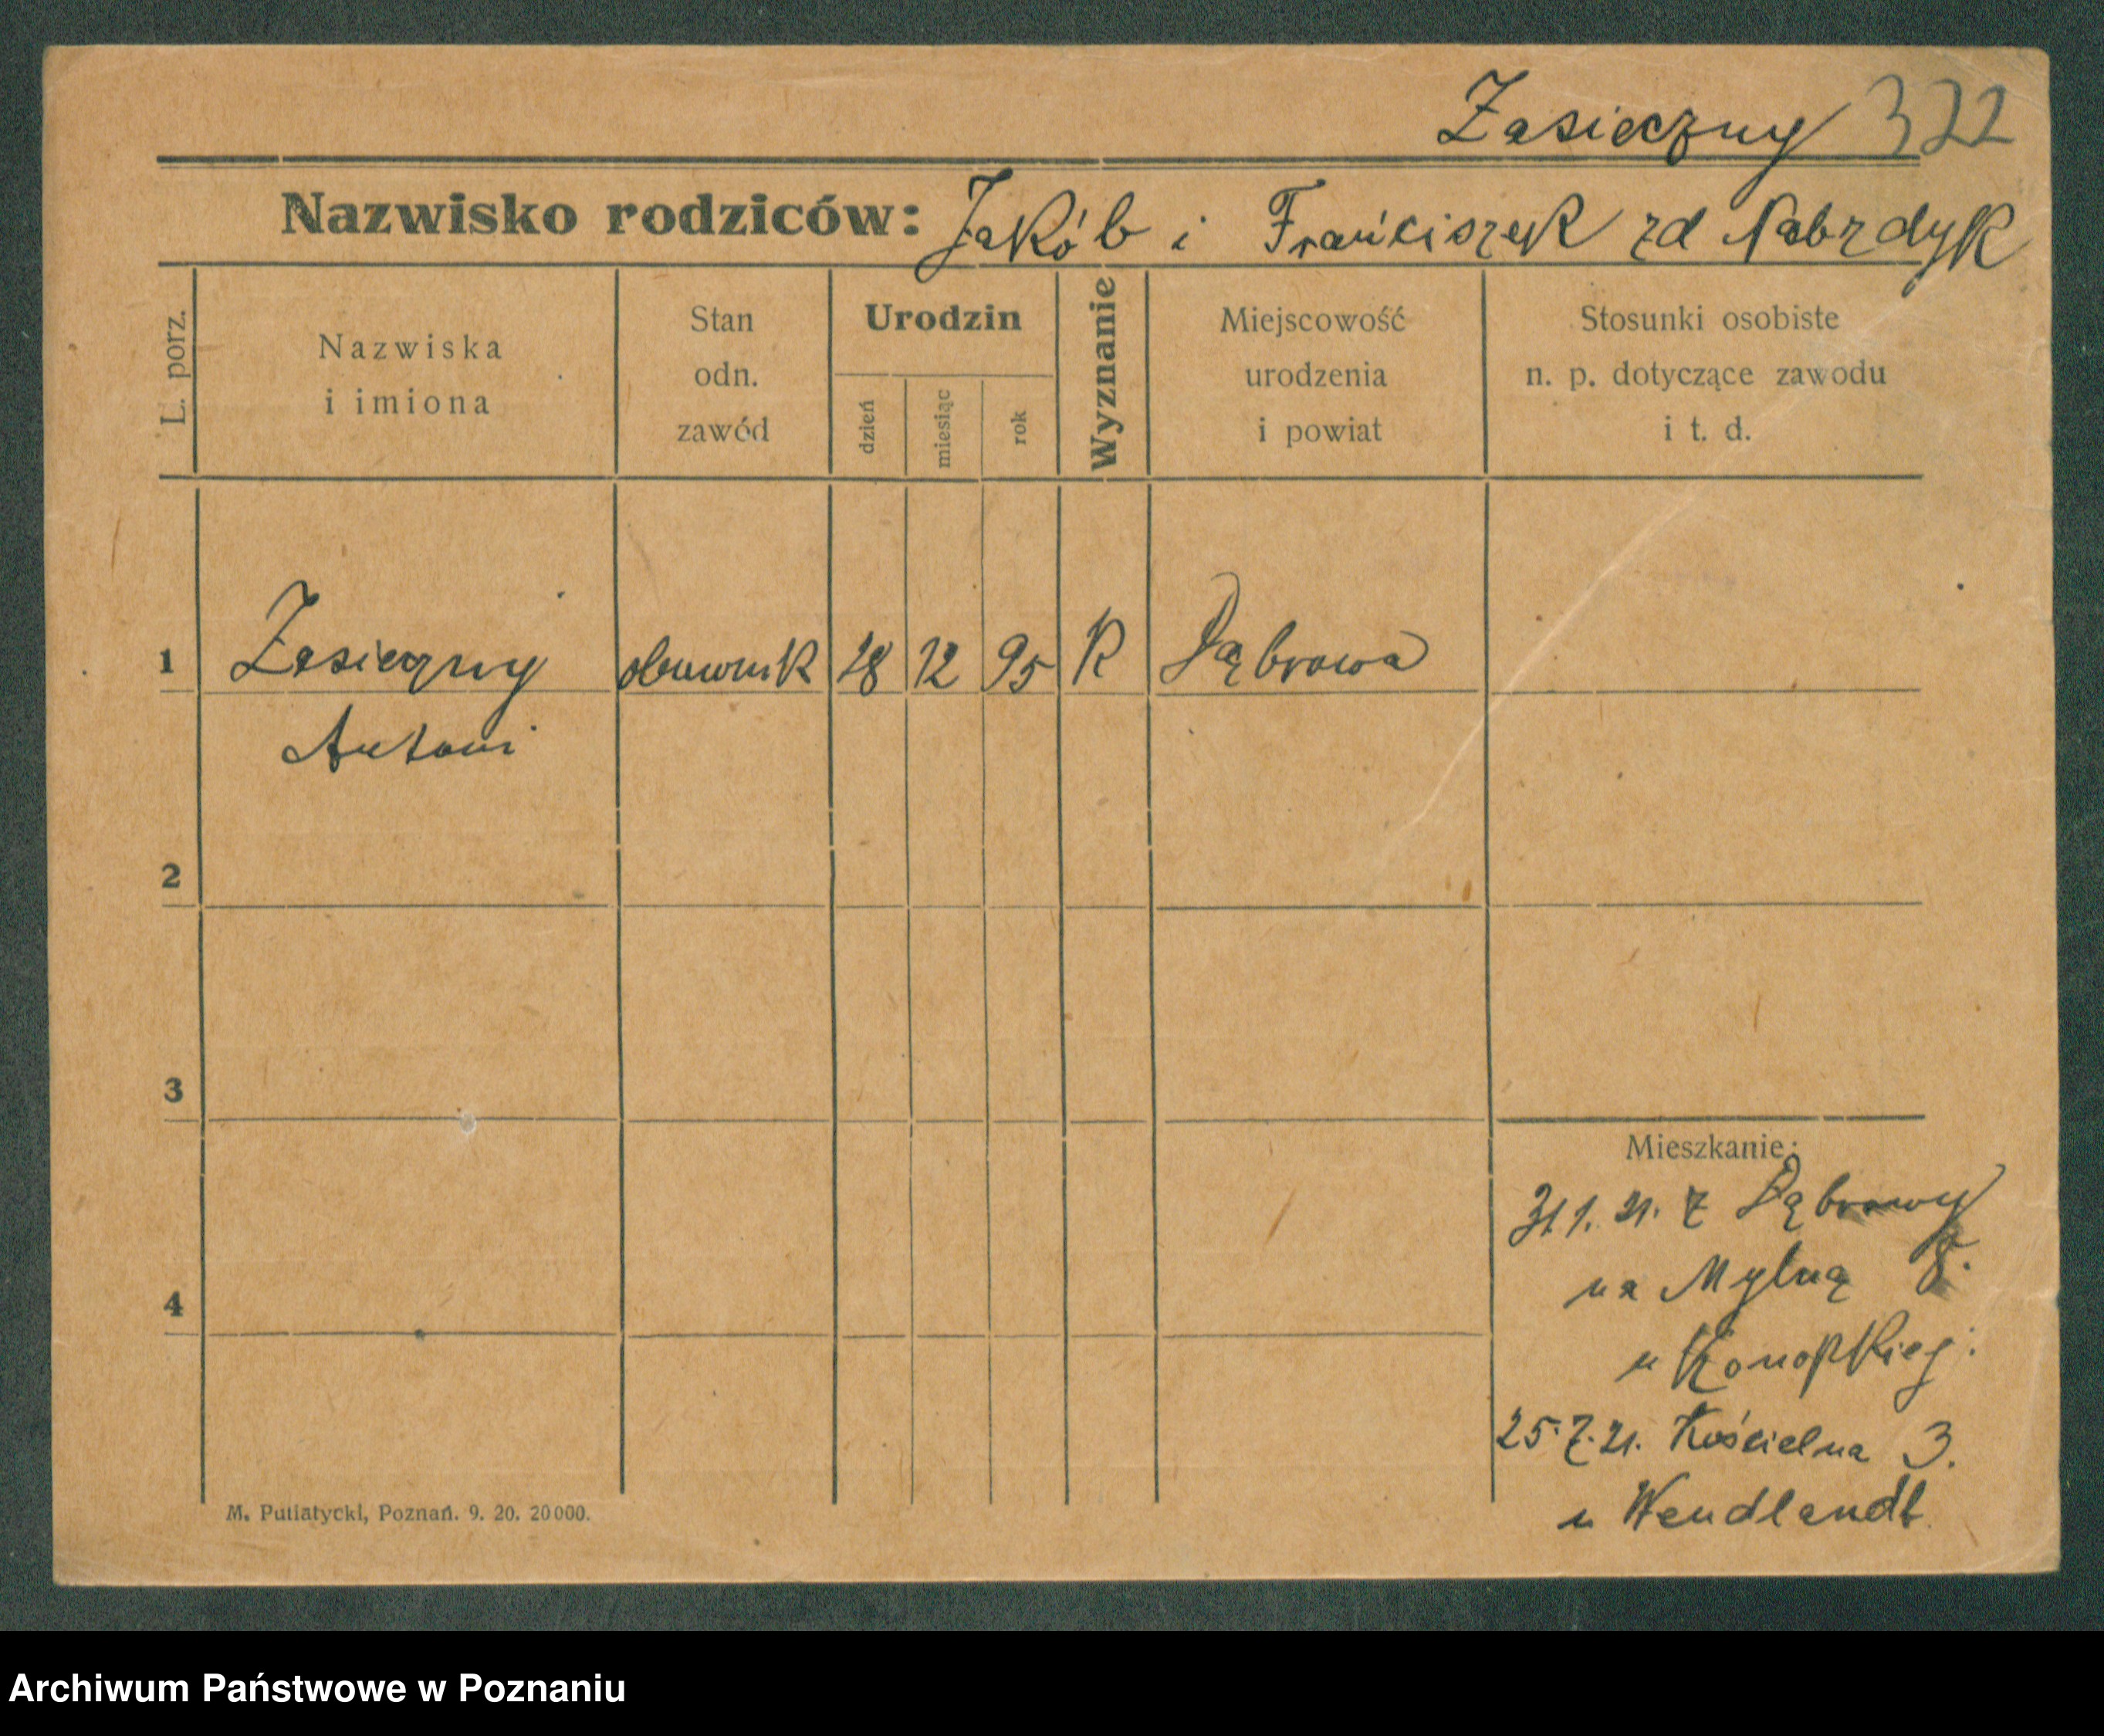 Zasieczny 322
Nazwisko rodziców: Jakób i Franciszek zd Nabrdyk
L. porz.
Nazwiska
i imiona
Stan
odn.
zawód
Urodzin
dzień
miesiąc
rok
Wyznanie
Miejscowość
urodzenia
i powiat
Stosunki osobiste
n. p. dotyczące zawodu
i t. d.
1 Zasieczny obuwnik 28 12 95 K Dąbrowa
Antoni
2
3
4
Mieszkanie:
31.1.21. z Dąbrowy
na Mylną 8.
u Konopkieg:
25.7.21. Kościelna 3.
u Wendlandt
M. Putiatycki, Poznań. 9. 20. 20000.
Archiwum Państwowe w Poznaniu